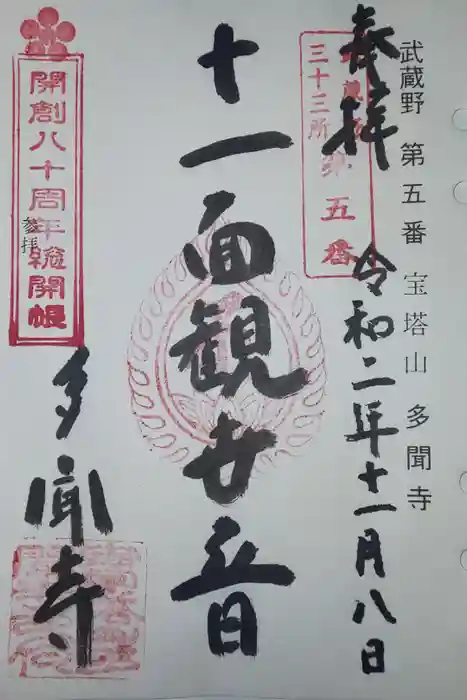 武蔵野 第五番 宝塔山 多聞寺
奉拝
令和二年十一月八日
三十三所
第五番
十一面観世音
開創八十周年総開帳
参拝
多聞寺